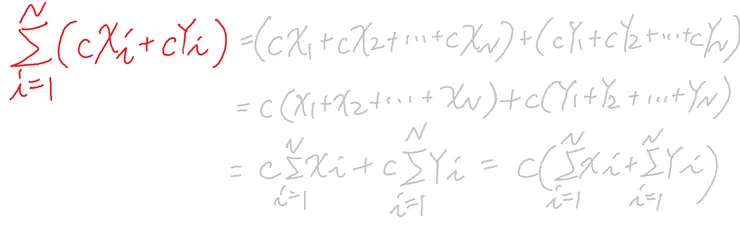 \sum_{i=1}^{N}(cX_i+cY_i) =(cX_1+cX_2+...+cX_N)+(cY_1+cY_2+...+cY_N)
=c(X_1+X_2+...+X_N)+c(Y_1+Y_2+...+Y_N)
=c\sum_{i=1}^{N}X_i+c\sum_{i=1}^{N}Y_i=c(\sum_{i=1}^{N}X_i+\sum_{i=1}^{N}Y_i)